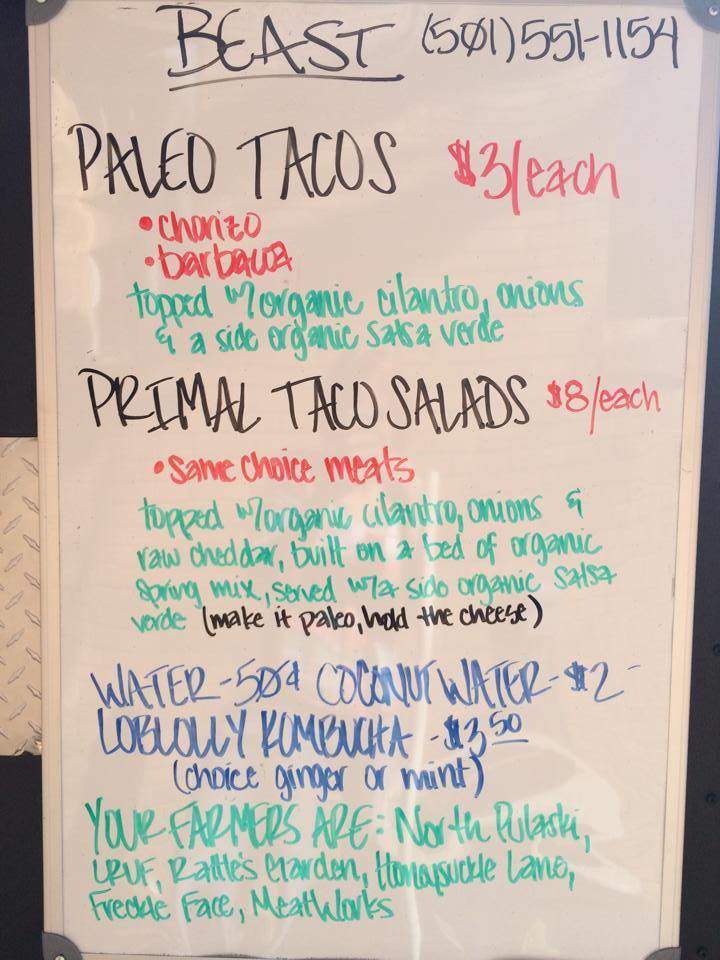 BEAST (501) 551-1154
PALEO TACOS $3/each
• chorizo
• barbacoa
topped w/organic cilantro, onions
& a side organic salsa verde
PRIMAL TACO SALADS $8/each
• same choice meats
topped w/organic cilantro, onions &
raw cheddar, built on a bed of organic
spring mix, served w/a side organic salsa
verde (make it paleo, hold the cheese)
WATER - 50¢ COCONUT WATER - $2
LOBLOLLY KOMBUCHA - $3.50
(choice ginger or mint)
YOUR FARMERS ARE: North Pulaski,
LRUF, Rattle's Garden, Honeysuckle Lane,
Freckle Face, MeatWorks